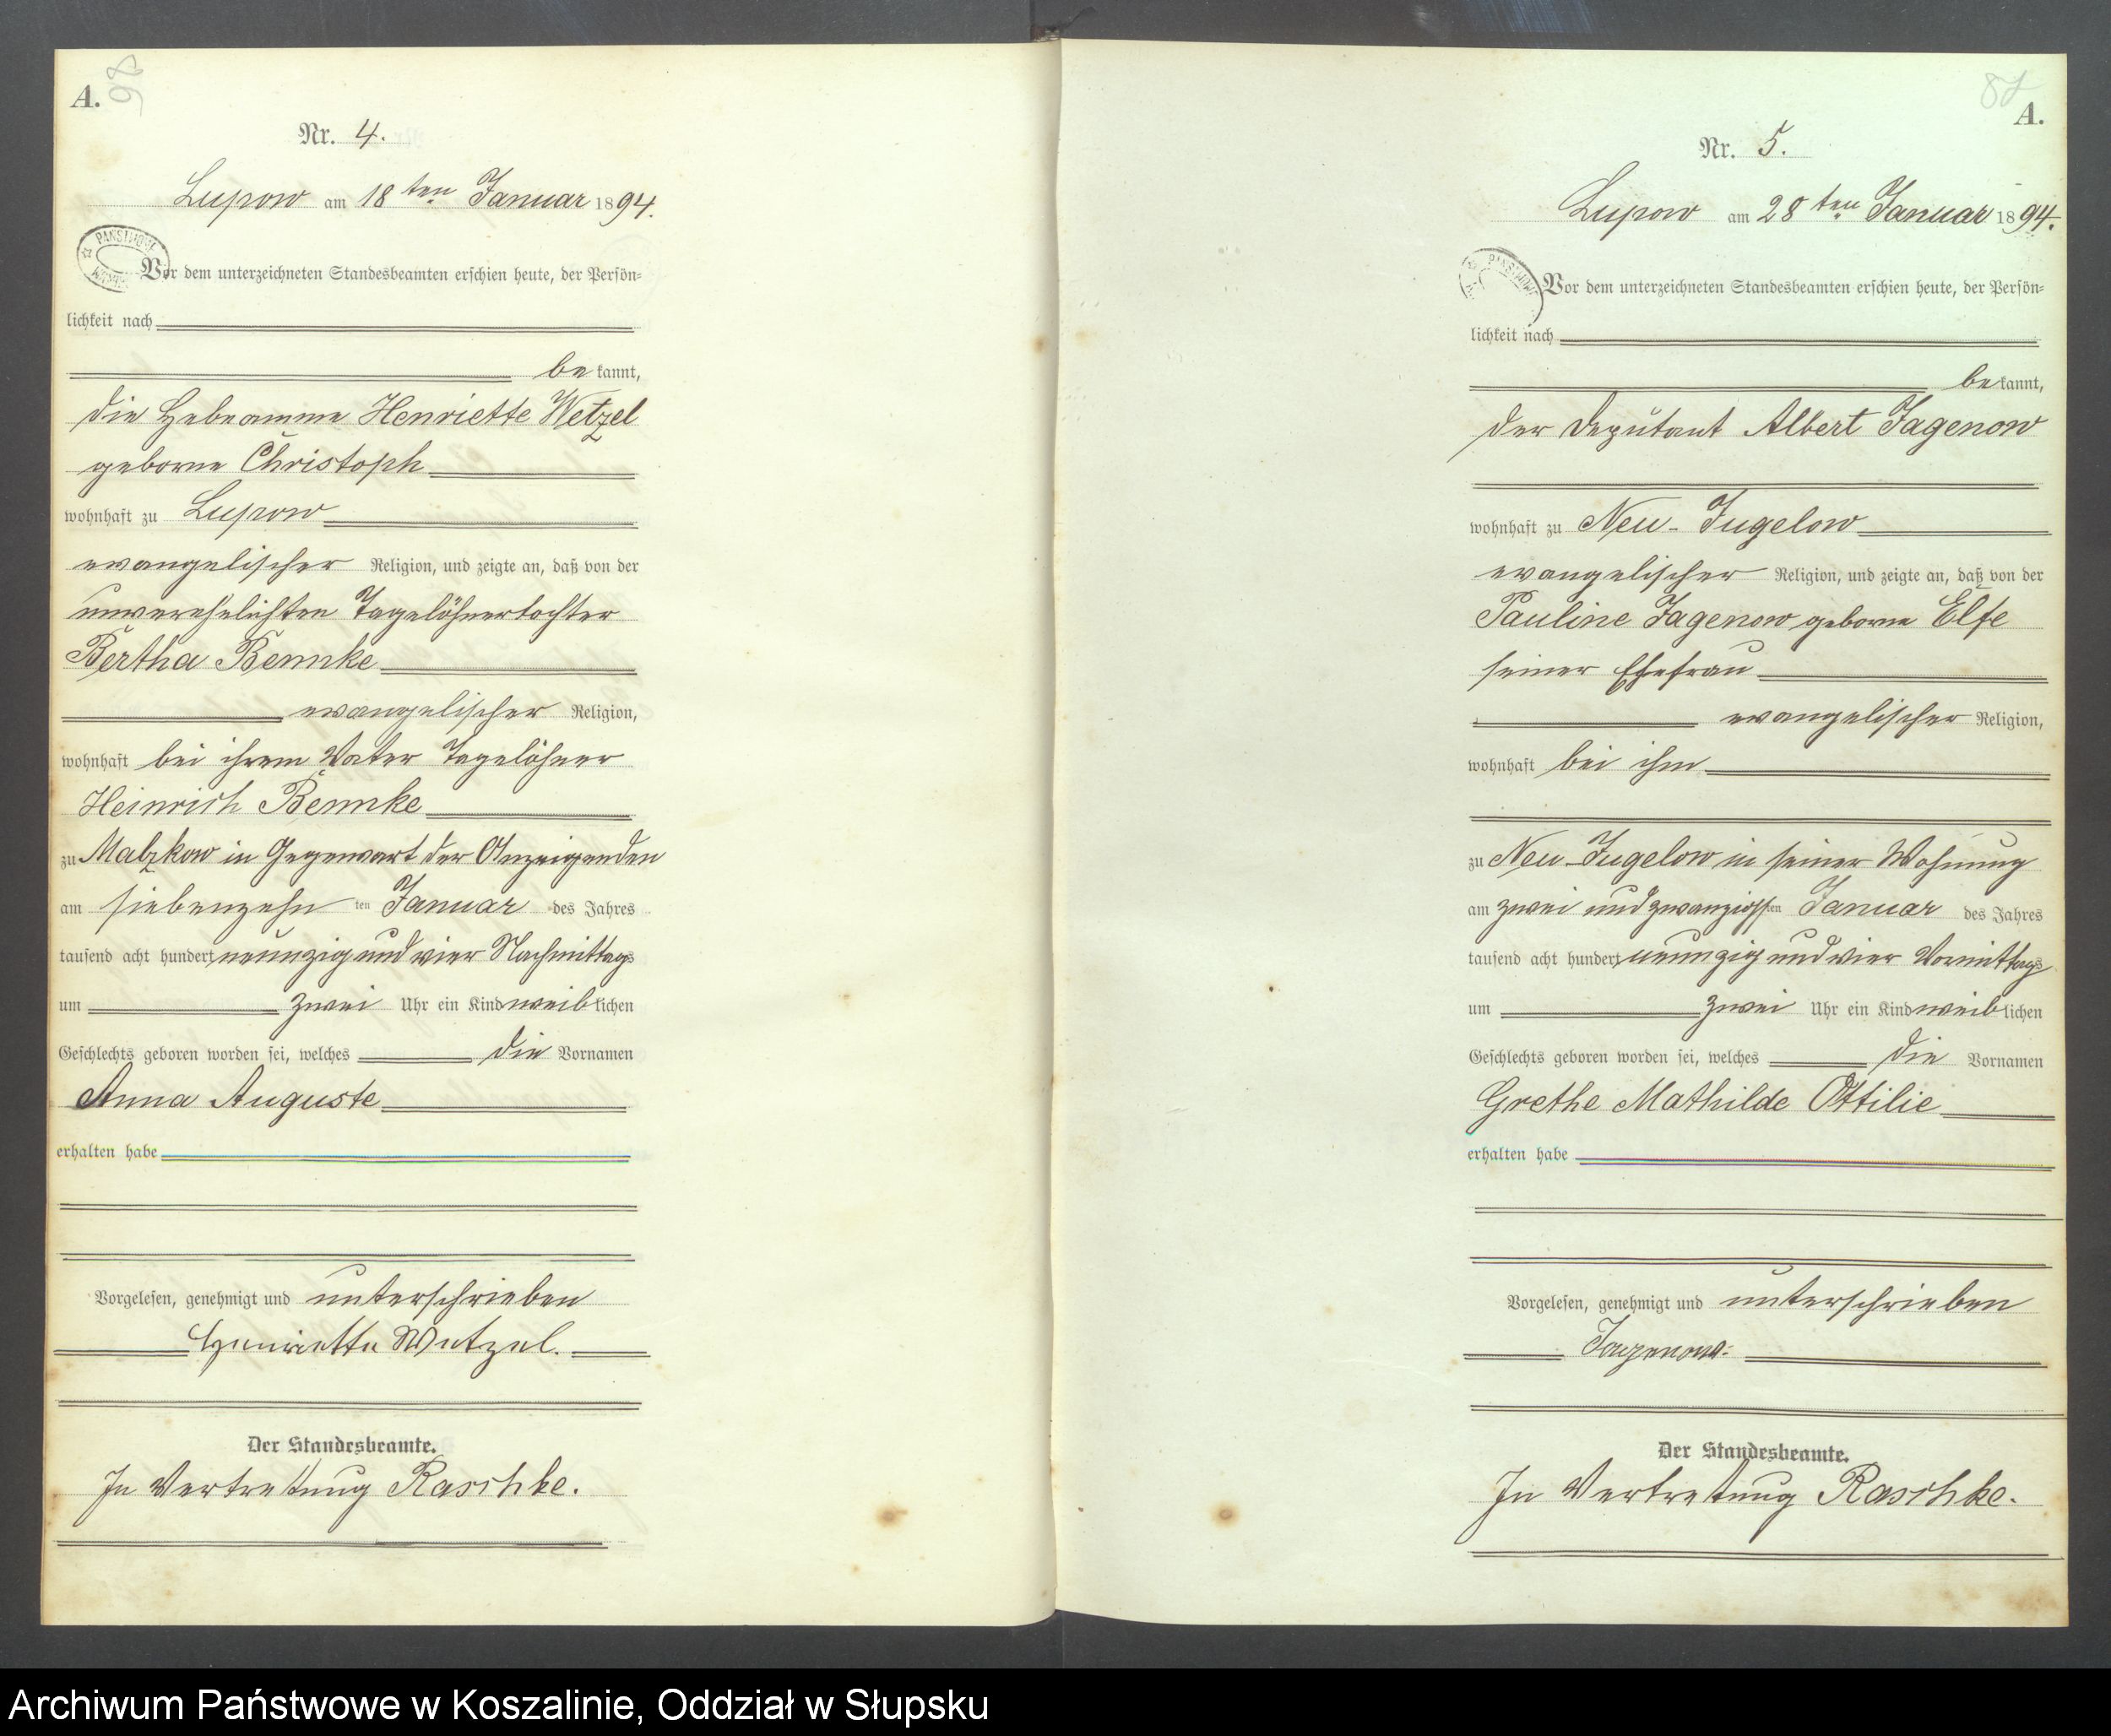 A.
98
Nr. 4.
Lupow am 18ten Januar 1894.
PAŃSTWOWE
Vor dem unterzeichneten Standesbeamten erschien heute, der Persön-
lichkeit nach
be kannt,
die Hebeamme Henriette Wetzel
geborne Christoph
wohnhaft zu Lupow
evangelischer Religion, und zeigte an, daß von der
unverehelichten Tagelöhnertochter
Bertha Bennke
evangelischer Religion,
wohnhaft bei ihrem Vater Tagelöhner
Heinrich Bennke
zu Malzkow in Gegenwart der Anzeigenden
am siebenzehn ten Januar des Jahres
tausend acht hundert neunzig und vier Nachmittags
um zwei Uhr ein Kind weiblichen
Geschlechts geboren worden sei, welches die Vornamen
Anna Auguste
erhalten habe
Vorgelesen, genehmigt und unterschrieben
Henriette Wetzel.
Der Standesbeamte.
In Vertretung Raschke.
A.
Nr. 5.
Lupow am 28ten Januar 1894.
PAŃSTWOWE
Vor dem unterzeichneten Standesbeamten erschien heute, der Persön-
lichkeit nach
be kannt,
der Deputant Albert Jagenow
wohnhaft zu Neu-Jugelow
evangelischer Religion, und zeigte an, daß von der
Pauline Jagenow geborne Else
seiner Ehefrau
evangelischer Religion,
wohnhaft bei ihm
zu Neu-Jugelow in seiner Wohnung
am zwei und zwanzigsten Januar des Jahres
tausend acht hundert neunzig und vier Vormittags
um zwei Uhr ein Kind weiblichen
Geschlechts geboren worden sei, welches die Vornamen
Grethe Mathilde Ottilie
erhalten habe
Vorgelesen, genehmigt und unterschrieben
Jagenow.
Der Standesbeamte.
In Vertretung Raschke.
Archiwum Państwowe w Koszalinie, Oddział w Słupsku